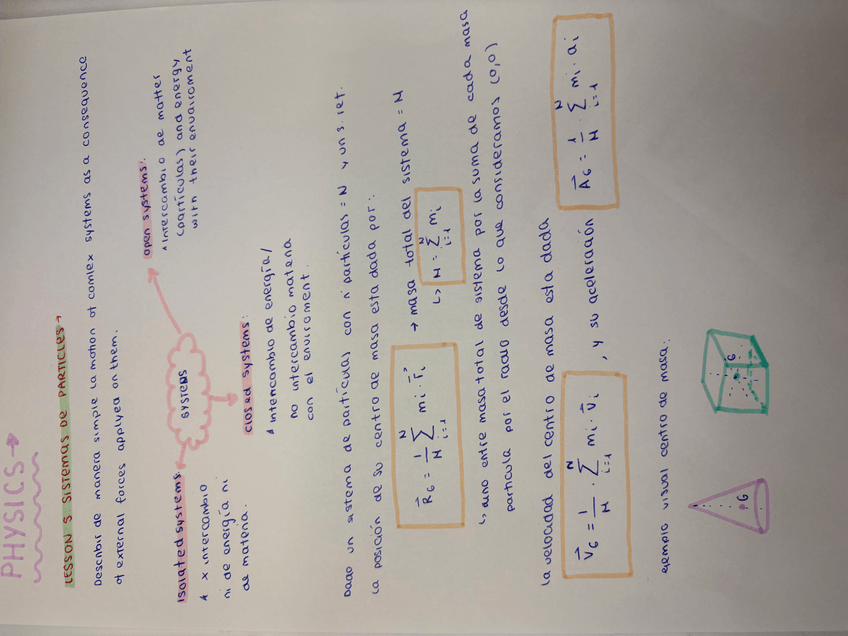 PHYSICS →
LESSON 5 SISTEMAS DE PARTICLES →
Describir de manera simple la motion of comlex systems as a consequence
of external forces applyed on them.
SYSTEMS
isolated systems:
* x intercambio
ni de energía ni
de materia.
closed systems:
* intencambio de energía/
no intercambio materia
con el enviroment.
open systems:
* intercambio de matter
(partículas) and energy
with their envairoment
Dado un sistema de partículas con n partículas = N y un s. ref.
la posición de su centro de masa esta dada por:
R⃗G = 1/M N∑i=1 mi · r⃗i
→ masa total del sistema = M
↳ M = N∑i=1 mi
↳ uno entre masa total de sistema por la suma de cada masa
particula por el radio desde lo que consideramos (0,0)
la velocidad del centro de masa esta dada
V⃗G = 1/M · N∑i=1 mi · v⃗i , y su aceleración A⃗G = 1/M · N∑i=1 mi · ai
ejemplo visual centro de masa:
G
G